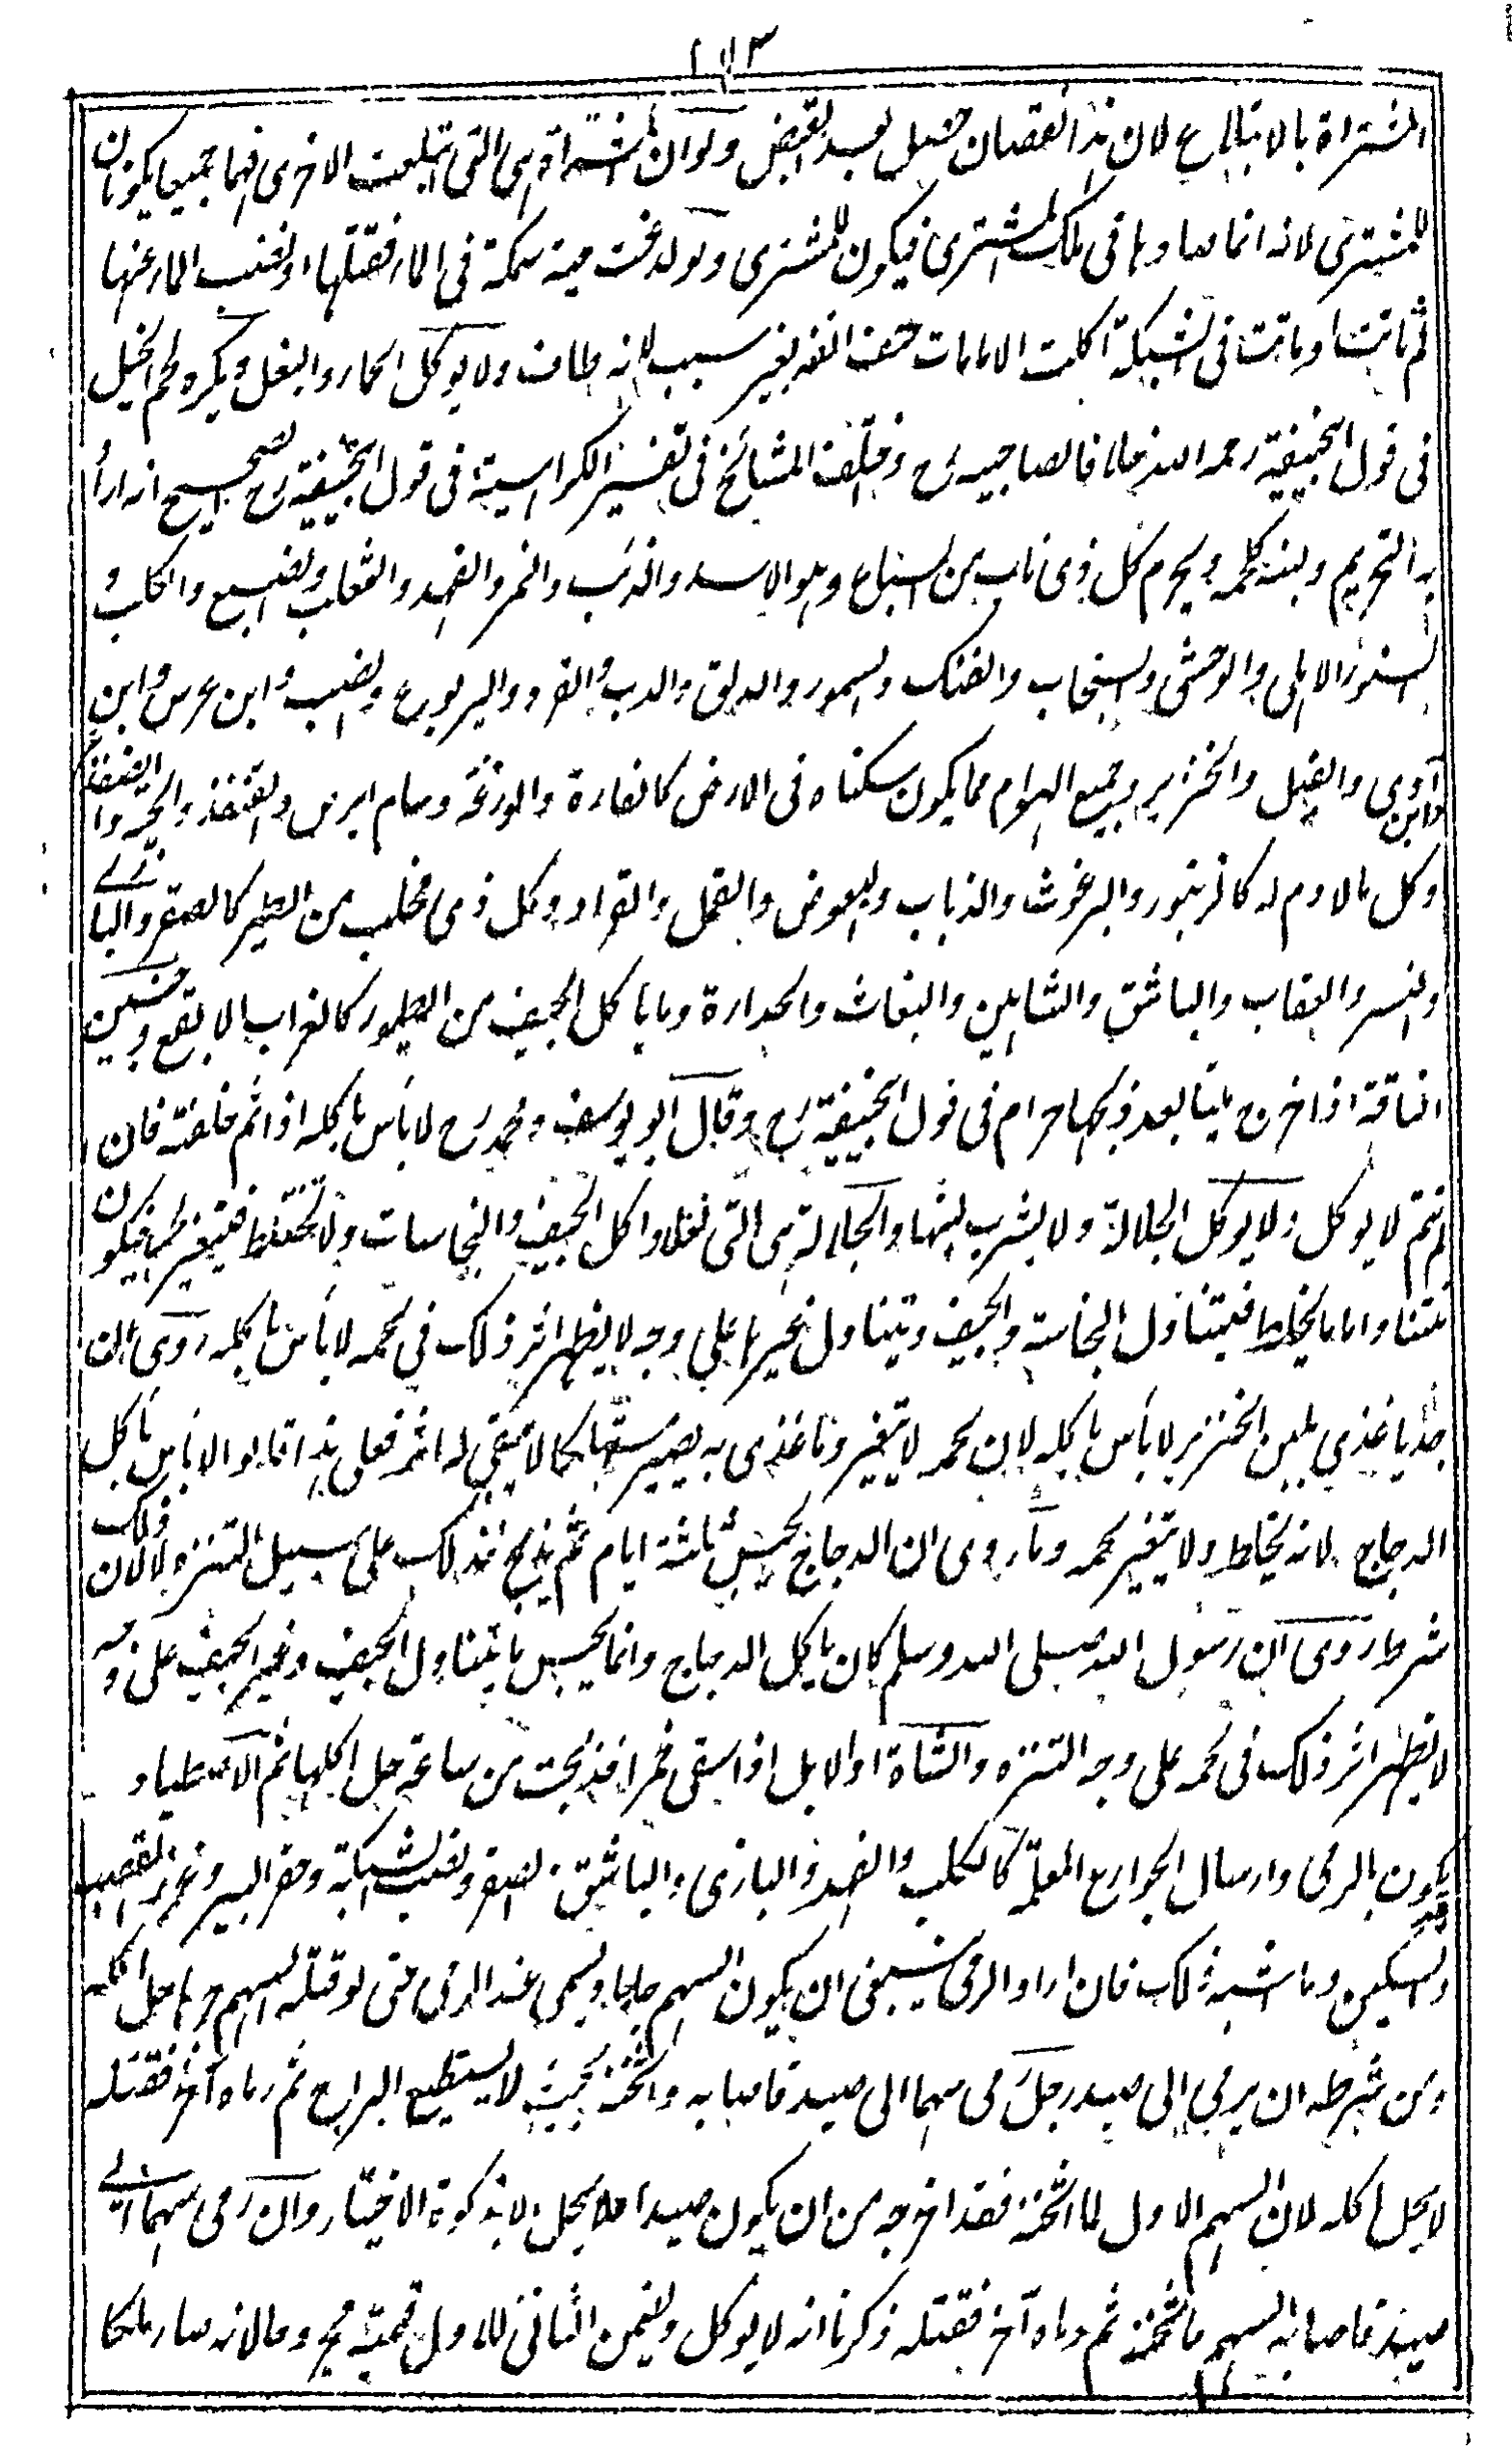 ١٥٣
المشتراة بالابتلاع لان هذا نقصان حصل بعد القبض ولو ان المشتراة هى التى ابتلعت الاخرى فهما جميعا يكونان
للمشترى لانه انما صادها فى ملك المشترى فيكون للمشترى ولو لدغت حية سمكة فى الماء فقتلتها او نضب الماء عنها
ثم ماتت او ماتت فى الشبكة اكلت الا ما مات حتف انفه بغير سبب لانه طاف ولا يوكل الحمار والبغل ويكره لحم الخيل
فى قول ابيحنيفة رحمه الله خلافا لصاحبيه رح واختلف المشائخ فى تفسير الكراهية فى قول ابيحنيفة رح الصحيح انه اراد
به التحريم ولبنه كلحمه ويحرم كل ذى ناب من السباع وهو الاسد والذئب والنمر والفهد والثعلب والضبع والكلب و
السنور الاهلى والوحشى والسنجاب والفنك والسمور والدلق والدب والقرد واليربوع والضب وابن عرس وابن
آوى والفيل والخنزير وجميع الهوام مما يكون سكناه فى الارض كالفارة والوزغة وسام ابرص والقنفذ والحية والضفدع
وكل ما لا دم له كالزنبور والبرغوث والذباب والبعوض والقمل والقراد وكل ذى مخلب من الطير كالصقر والبازے
والنسر والعقاب والباشق والشاهين والبغاث والحدارة وما ياكل الجيف من الطيور كالغراب الابقع وجنين
الناقة اذا خرج ميتا بعد ذبحها حرام فى قول ابيحنيفة رح وقال ابو يوسف ومحمد رح لا بأس باكله اذا تم خلقته فان
لم يتم لا يوكل ولا يوكل الجلالة ولا يشرب لبنها والجلالة هى التى تعتاد اكل الجيف والنجاسات ولا تختلط فيتغير لحمها فيكون
منتنا واما ما يخلط فيتناول النجاسة والجيف ويتناول غيرها على وجه لا يظهر اثر ذلك فى لحمه لا بأس باكله روى ان
جديا غذى بلبن الخنزير لا بأس باكله لان لحمه لا يتغير وما غذى به يصير مستهلكا لا يبقى له اثر فعلى هذا قالوا لا بأس باكل
الدجاج لانه يخلط ولا يتغير لحمه وما روى ان الدجاج يحبس ثلثة ايام ثم يذبح فذلك على سبيل التنزه لا لان ذلك
شرط روى ان رسول الله صلى الله وسلم كان ياكل الدجاج وانما يحبس ما يتناول الجيف وغير الجيف على وجه
لا يظهر اثر ذلك فى لحمه على وجه التنزه والشاة او الابل اذا سقى خمرا فذبحت من ساعته حل اكلها ثم الاصطياد
قد يكون بالرمى وارسال الجوارح المعلمة كالكلب والفهد والبازى والباشق والصقر ونصب الشبكة وحفر البير وغرز القصب
والسكين وما اشبه ذلك فان اراد الرمى ينبغى ان يكون السهم جارحا ويسمى عند الرمى حتى لو قتله السهم جرحا حل اكله
ومن شرطه ان يرمى الى صيد رجل رمى سهما الى صيد فاصابه واثخنه بحيث لا يستطيع البراح ثم رماه آخر فقتله
لا يحل اكله لان السهم الاول لما اثخنه فقد اخرجه من ان يكون صيدا فلا يحل الا بذكوة الاختيار وان رمى سهما الى
صيد فاصابه السهم فاثخنه ثم رماه آخر فقتله ذكرنا انه لا يوكل ويضمن الثانى للاول قيمته مجروحا لانه صار ملكا